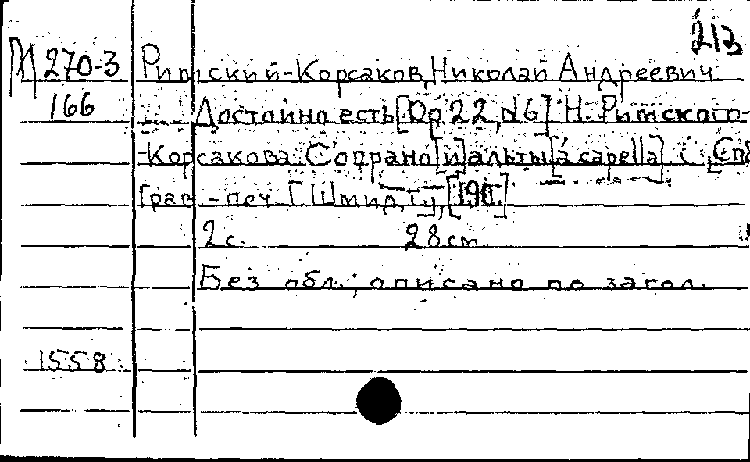 213
М 270-3 Римский-Корсаков, Николай Андреевич
166 Достойно есть [Ор 22, №6] Н. Римского-
Корсакова. Сопрано [и] альты [a capella]. С, [Спб
Грав-печ. Г. Шмид,
2 с. 28 см
Без обл.; описано по загол.
1558